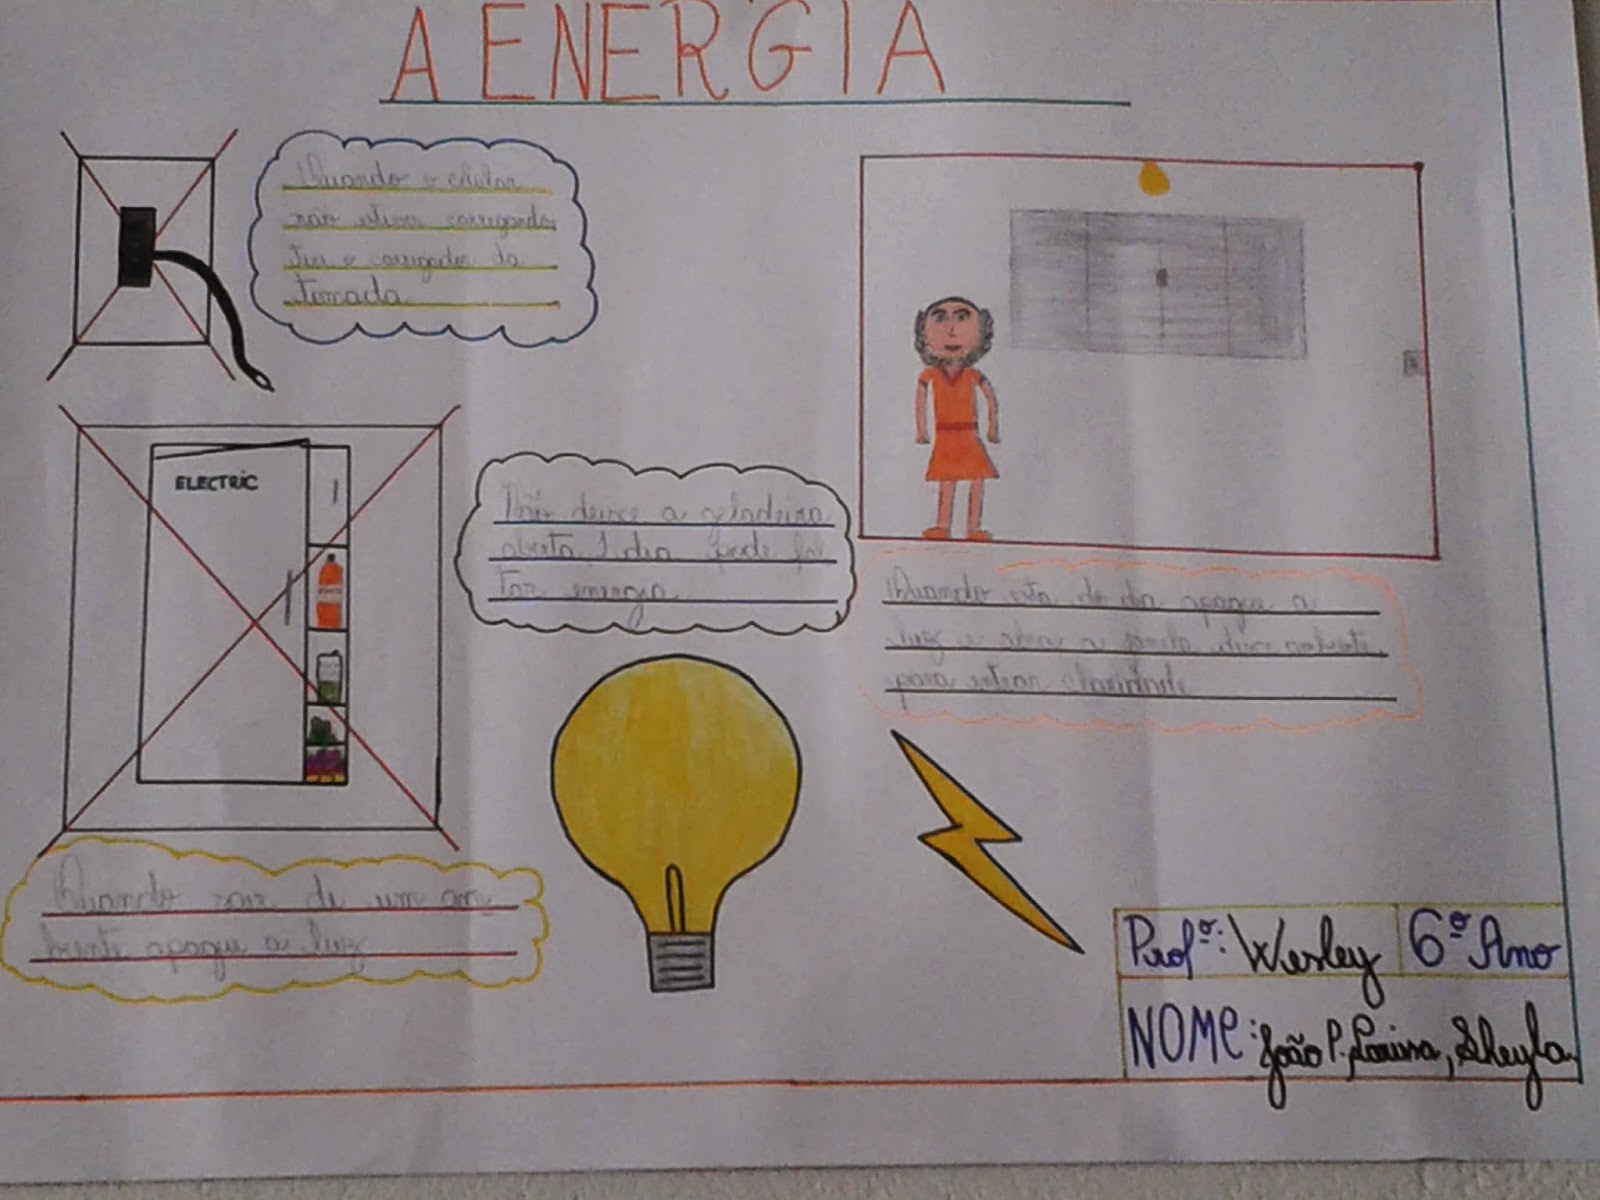 A ENERGIA
Quando o celular
não estiver carregando,
tire o carregador da
tomada.
ELECTRIC
Não deixe a geladeira
aberta, 1 dia pode fal
tar energia
Quando esta de dia apague a
luz e abra a janela
para entrar claridade
Quando sair de um am
biente apague a luz
Profº: Wesley 6º Ano
NOME: João P. Larissa, Sheyla